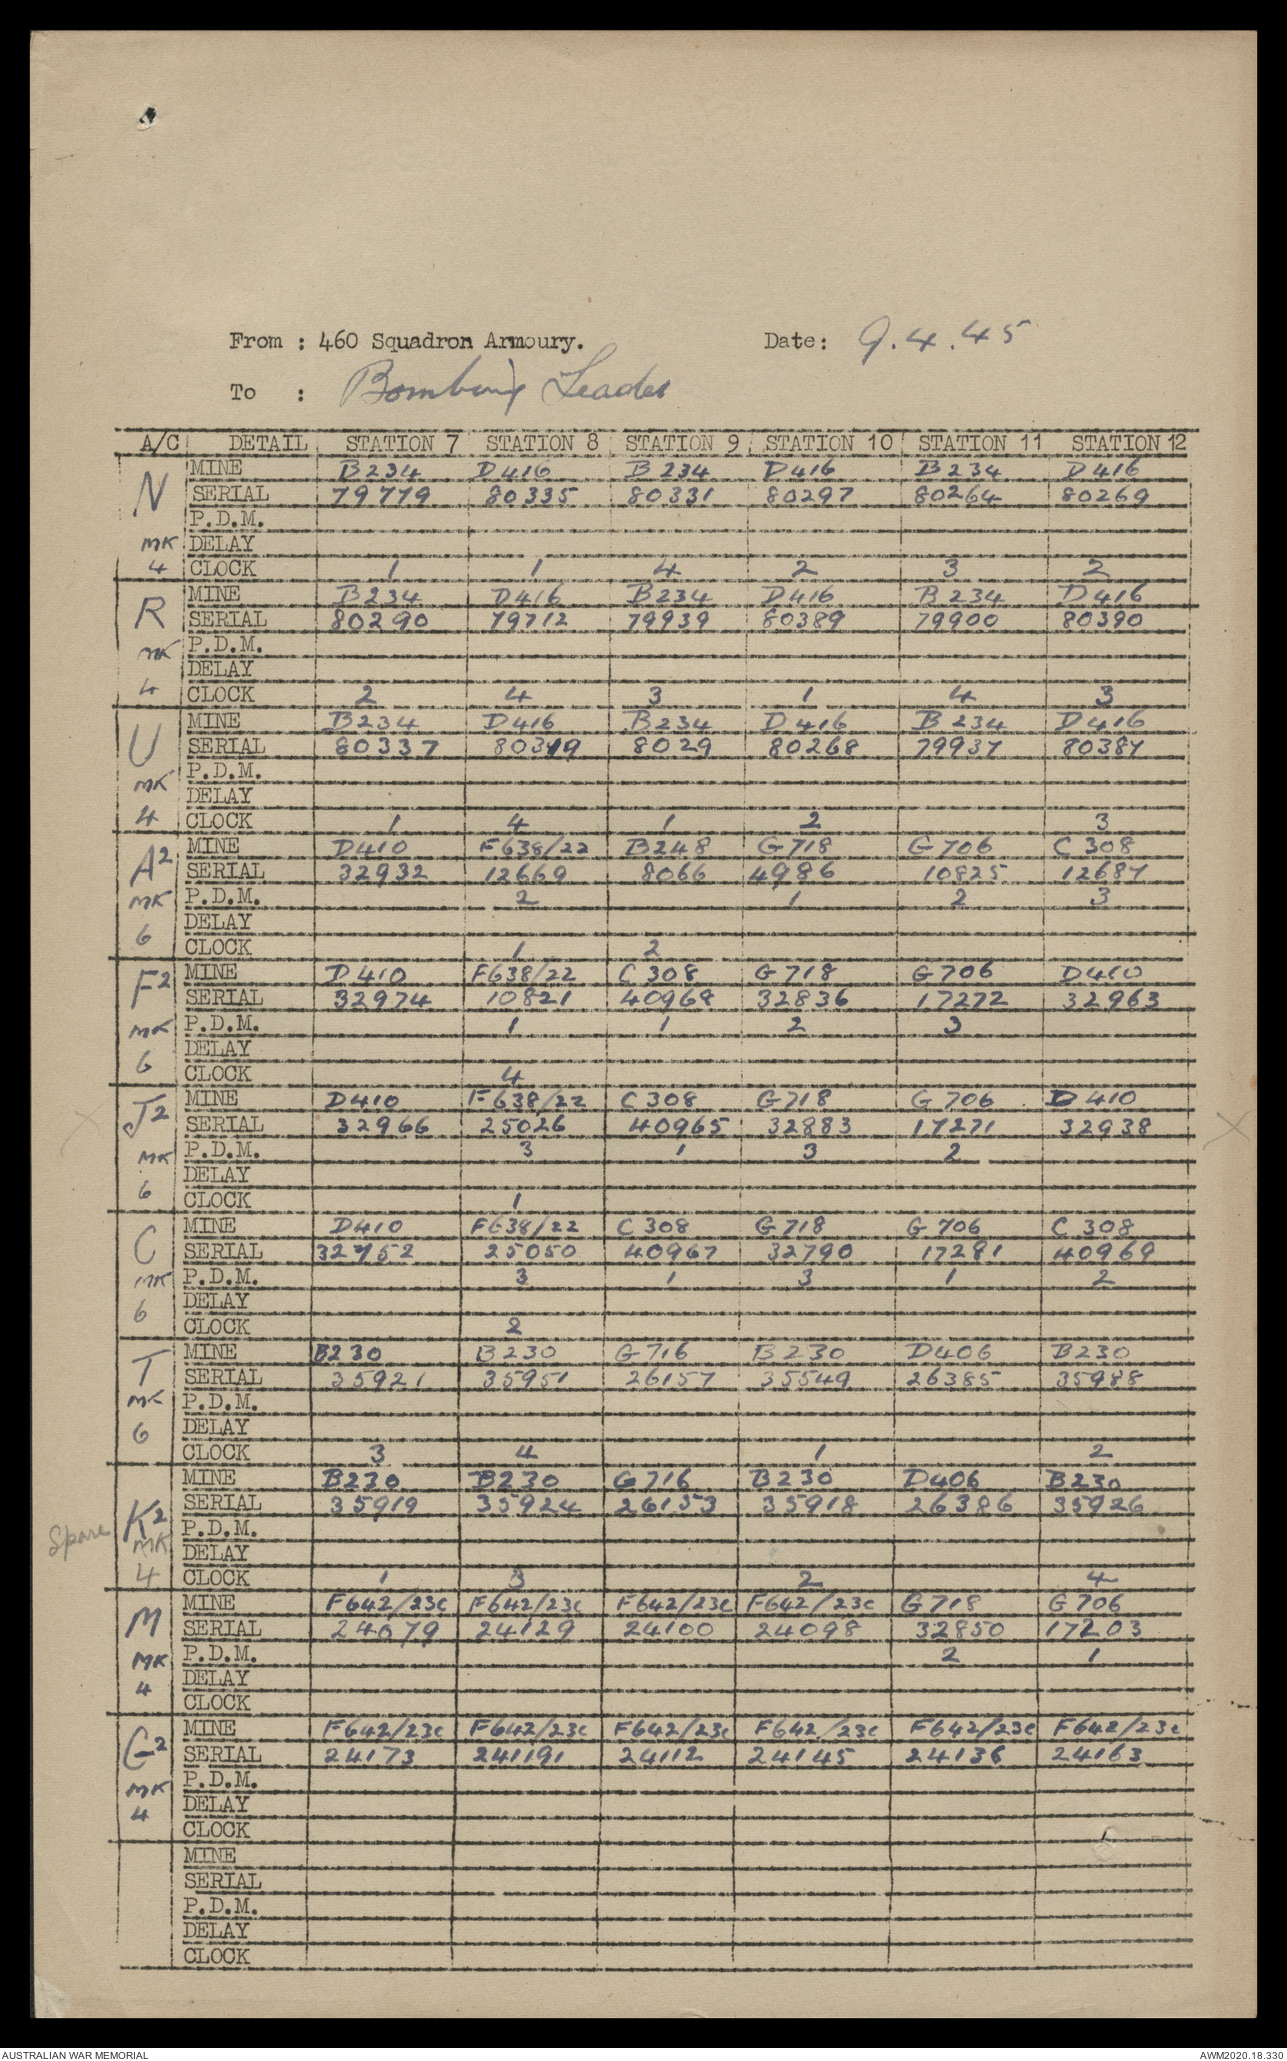 From : 460 Squadron Armoury. Date: 9.4.45
To : Bombing Leader
A/C DETAIL STATION 7 STATION 8 STATION 9 STATION 10 STATION 11 STATION 12
N MINE B234 D416 B234 D416 B234 D416
SERIAL 79779 80335 80331 80297 80264 80269
P.D.M.
MK DELAY
4 CLOCK 1 1 4 2 3 2
R MINE B234 D416 B234 D416 B234 D416
SERIAL 80290 79712 79939 80389 79900 80390
MK P.D.M.
DELAY
4 CLOCK 2 4 3 1 4 3
U MINE B234 D416 B234 D416 B234 D416
SERIAL 80337 80319 8029 80268 79937 80387
MK P.D.M.
DELAY
4 CLOCK 1 4 1 2 3
A2 MINE D410 F638/22 B248 G718 G706 C308
SERIAL 32932 12669 8066 4986 10825 12687
MK P.D.M. 2 1 2 3
DELAY
6 CLOCK 1 2
F2 MINE D410 F638/22 C308 G718 G706 D410
SERIAL 32974 10821 40968 32836 17272 32963
MK P.D.M. 1 1 2 3
DELAY
6 CLOCK 4
J2 MINE D410 F638/22 C308 G718 G706 D410
X SERIAL 32966 25026 40965 32883 17271 32938 X
MK P.D.M. 3 1 3 2
DELAY
6 CLOCK 1
C MINE D410 F638/22 C308 G718 G706 C308
SERIAL 32752 25050 40967 32790 17281 40969
MK P.D.M. 3 1 3 1 2
DELAY
6 CLOCK 2
T MINE B230 B230 G716 B230 D406 B230
SERIAL 35921 35951 26157 35549 26385 35988
MK P.D.M.
DELAY
6 CLOCK 3 4 1 2
K2 MINE B230 B230 G716 B230 D406 B230
SERIAL 35919 35924 26153 35918 26386 35926
Spare MK P.D.M.
DELAY
4 CLOCK 1 3 2 4
M MINE F642/23c F642/23c F642/23c F642/23c G718 G706
SERIAL 24079 24129 24100 24098 32850 17203
MK P.D.M. 2 1
4 DELAY
CLOCK
G2 MINE F642/23c F642/23c F642/23c F642/23c F642/23c F642/23c
SERIAL 24173 241191 24112 24145 24136 24163
MK P.D.M.
4 DELAY
CLOCK
MINE
SERIAL
P.D.M.
DELAY
CLOCK
AUSTRALIAN WAR MEMORIAL AWM2020.18.330